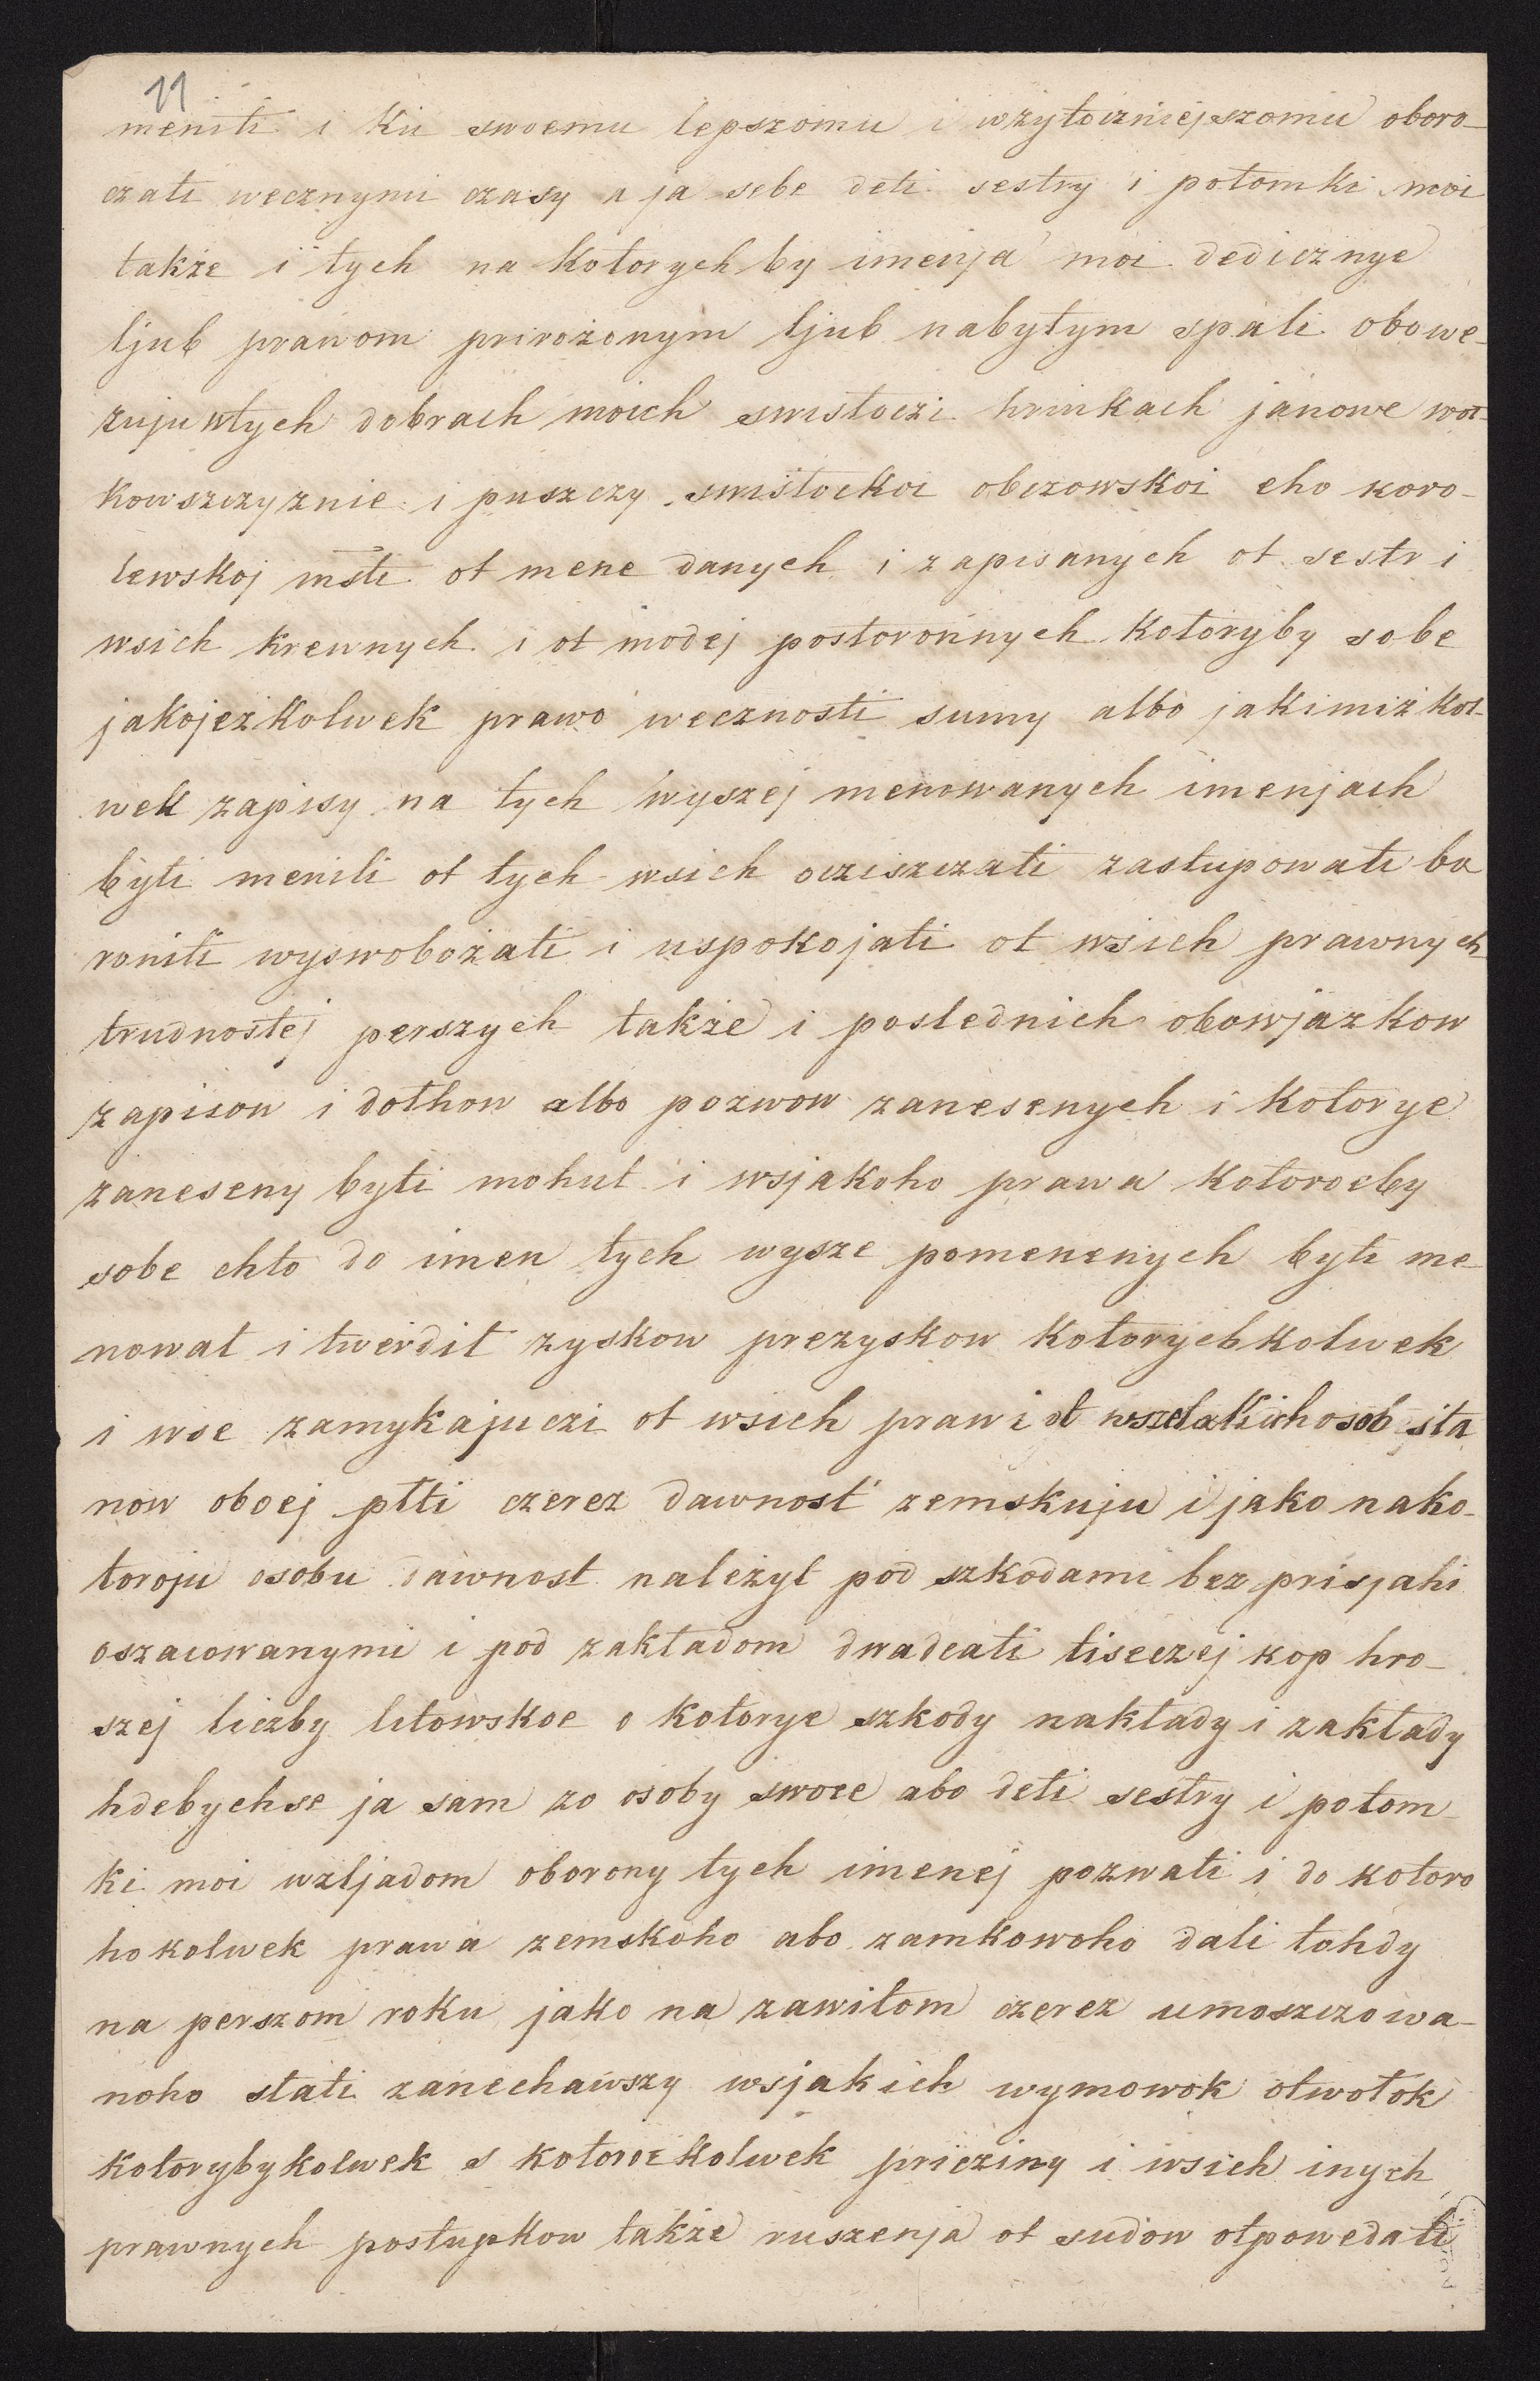 11
meniti i ku swoemu lepszomu i wżytoczniejszomu oboro-
czati wecznymi czasy a ja sebe deti sestry i potomki moi
także i tych na kotorych by imenja moi dedicznye
ljub prawom prirożonym ljub nabytym spali obowe-
zuju wtych dobrach moich swistoczi hrinkach janowe woł-
kowszczyznie i puszczy swistockoi obczowskoi eho koro-
lewskoj msti ot mene danych i zapisanych ot sestr i
wsich krewnych i ot ljudej postoronnych kotoryby sobe
jakojeżkolwek prawo wecznosti sumy albo jakimiż kol-
wek zapisy na tych wyszej menowanych imenjach
byti menili ot tych wsich ocziszczati zastupowati bo
roniti wyswobożati i uspokojati ot wsich prawnych
trudnostej perszych także i poslednich obowjazkow
zapisow i dołhow albo pozwow zanesenych i kotorye
zaneseny byti mohut i wsjakoho prawa kotoroeby
sobe chto do imen tych wysze pomenenych byti me-
nowal i twerdil zyskow prezyskow kotorychkolwek
i wse zamykajuczi ot wsich praw i ot wszelakich osob sta
now oboej płti czerez dawnost' zemskuju i jako nako-
toroju osobu dawnost należyt pod szkodami bez prisjahi
oszacowanymi i pod zakładom dwadcati tiseczej kop hro-
szej liczby litowskoe o kotorye szkody nakłady i zakłady
hdebychse ja sam zo osoby swoee abo deti sestry i potom-
ki moi wzljadom oborony tych imenej pozwati i do kotoro
ho kolwek prawa zemskoho abo zamkowoho dali tohdy
na perszom roku jako na zawitom czerez umoszczowa-
noho stati zanechawszy wsjakich wymowok otwołok
kotorybykolwek s kotoroekolwek pricziny i wsich inych
prawnych postupkow także ruszenja ot sudow otpowedati